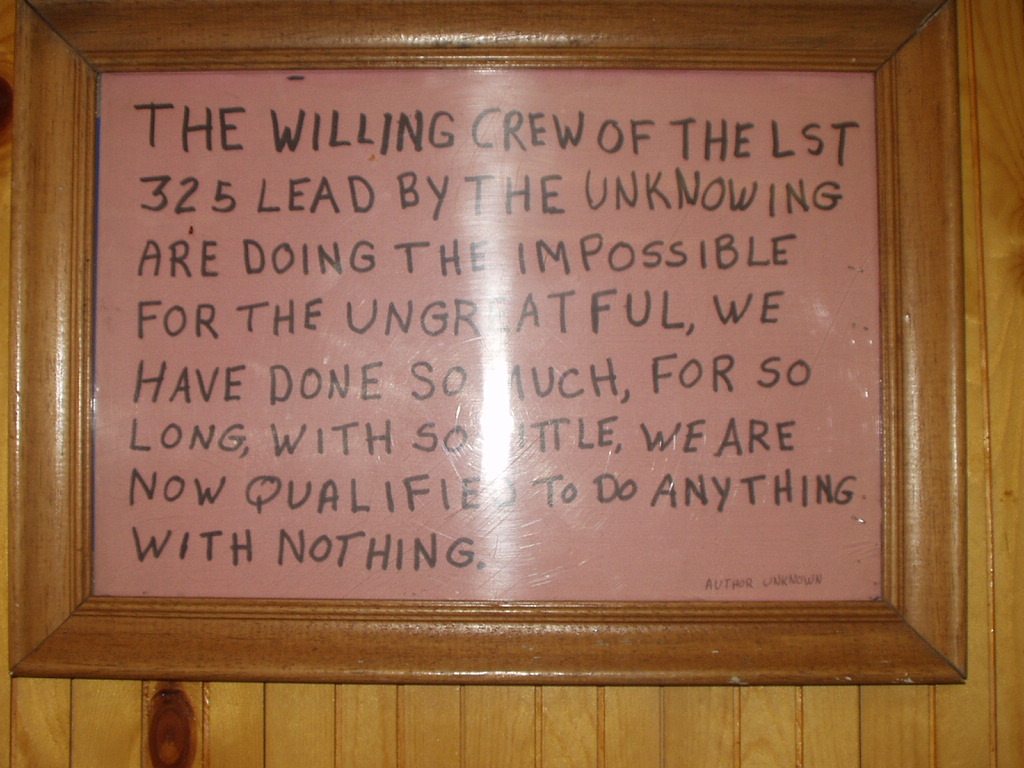 THE WILLING CREW OF THE LST
325 LEAD BY THE UNKNOWING
ARE DOING THE IMPOSSIBLE
FOR THE UNGREATFUL, WE
HAVE DONE SO MUCH, FOR SO
LONG, WITH SO LITTLE, WE ARE
NOW QUALIFIED TO DO ANYTHING
WITH NOTHING.
AUTHOR UNKNOWN